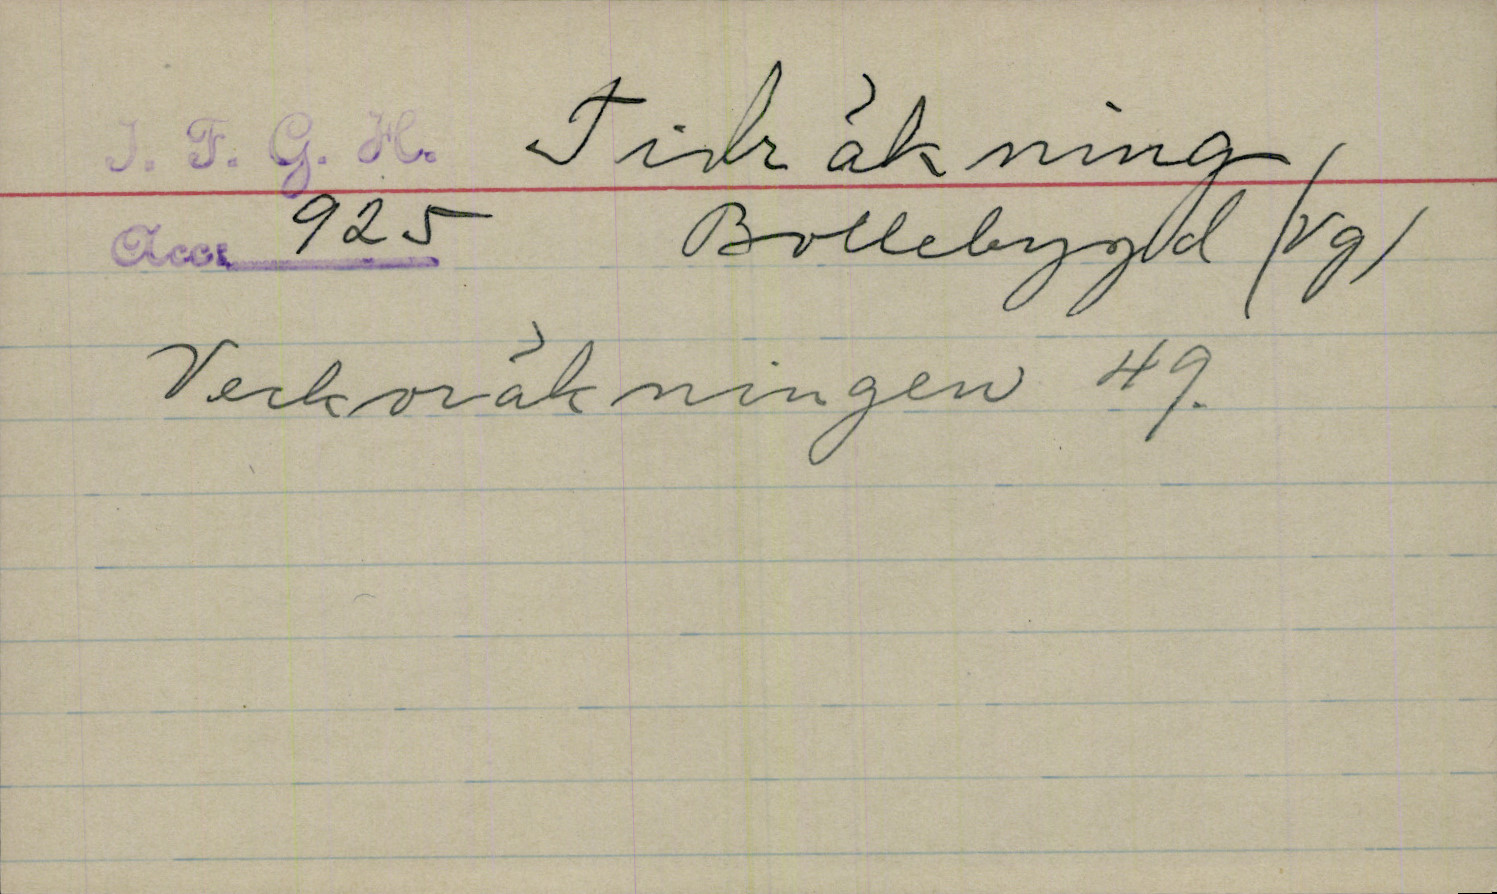 I. F. G. H. Tidräkning
Acc. 925 Bollebygd (Vg)
Veckoräkningen 49.